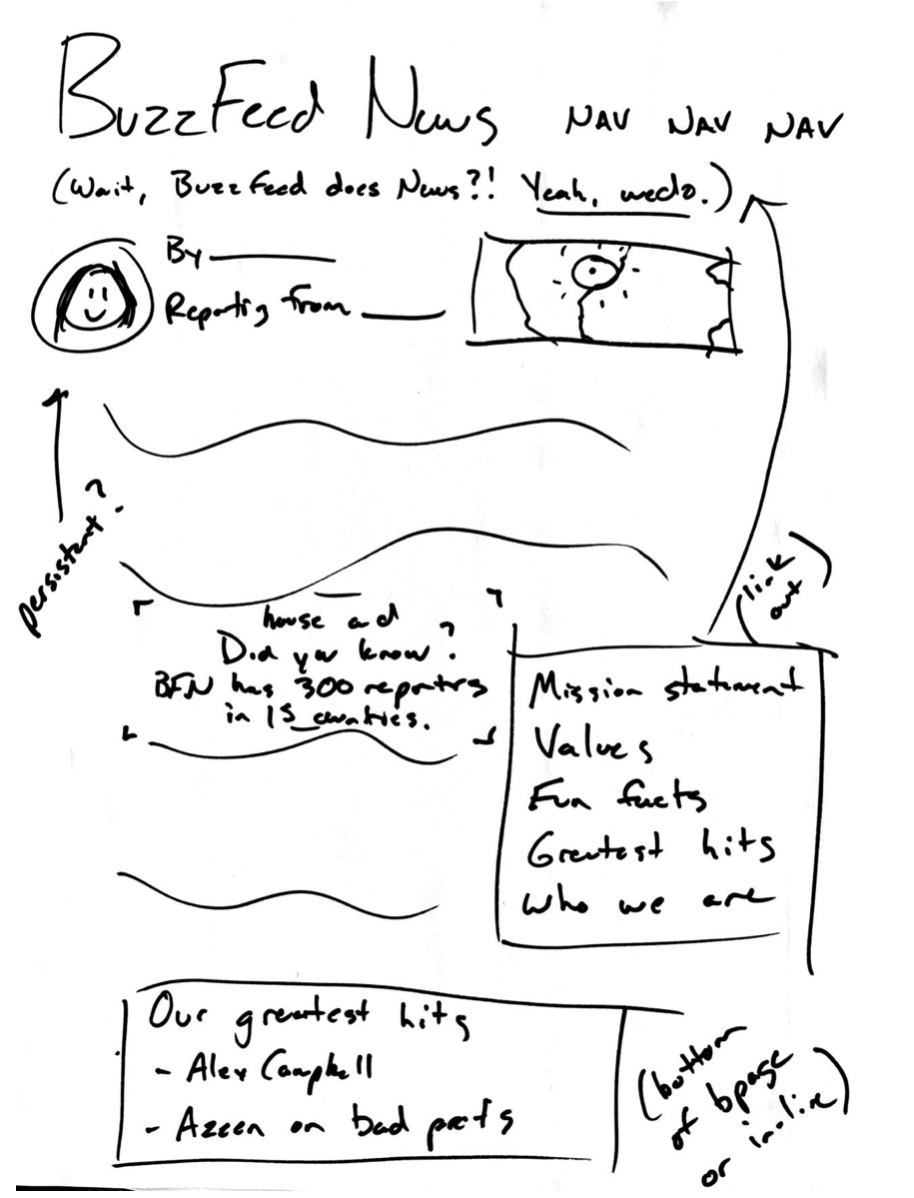 BuzzFeed News NAV NAV NAV
(Wait, BuzzFeed does News?! Yeah, we do.)
By
Reporting from
persistent?
(link
out)
house ad
Did you know?
BFN has 300 reporters
in 15 countries.
Mission statement
Values
Fun facts
Greatest hits
Who we are
Our greatest hits
- Alex Campbell
- Azeen on bad profs
(bottom
of bpage
or in-line)